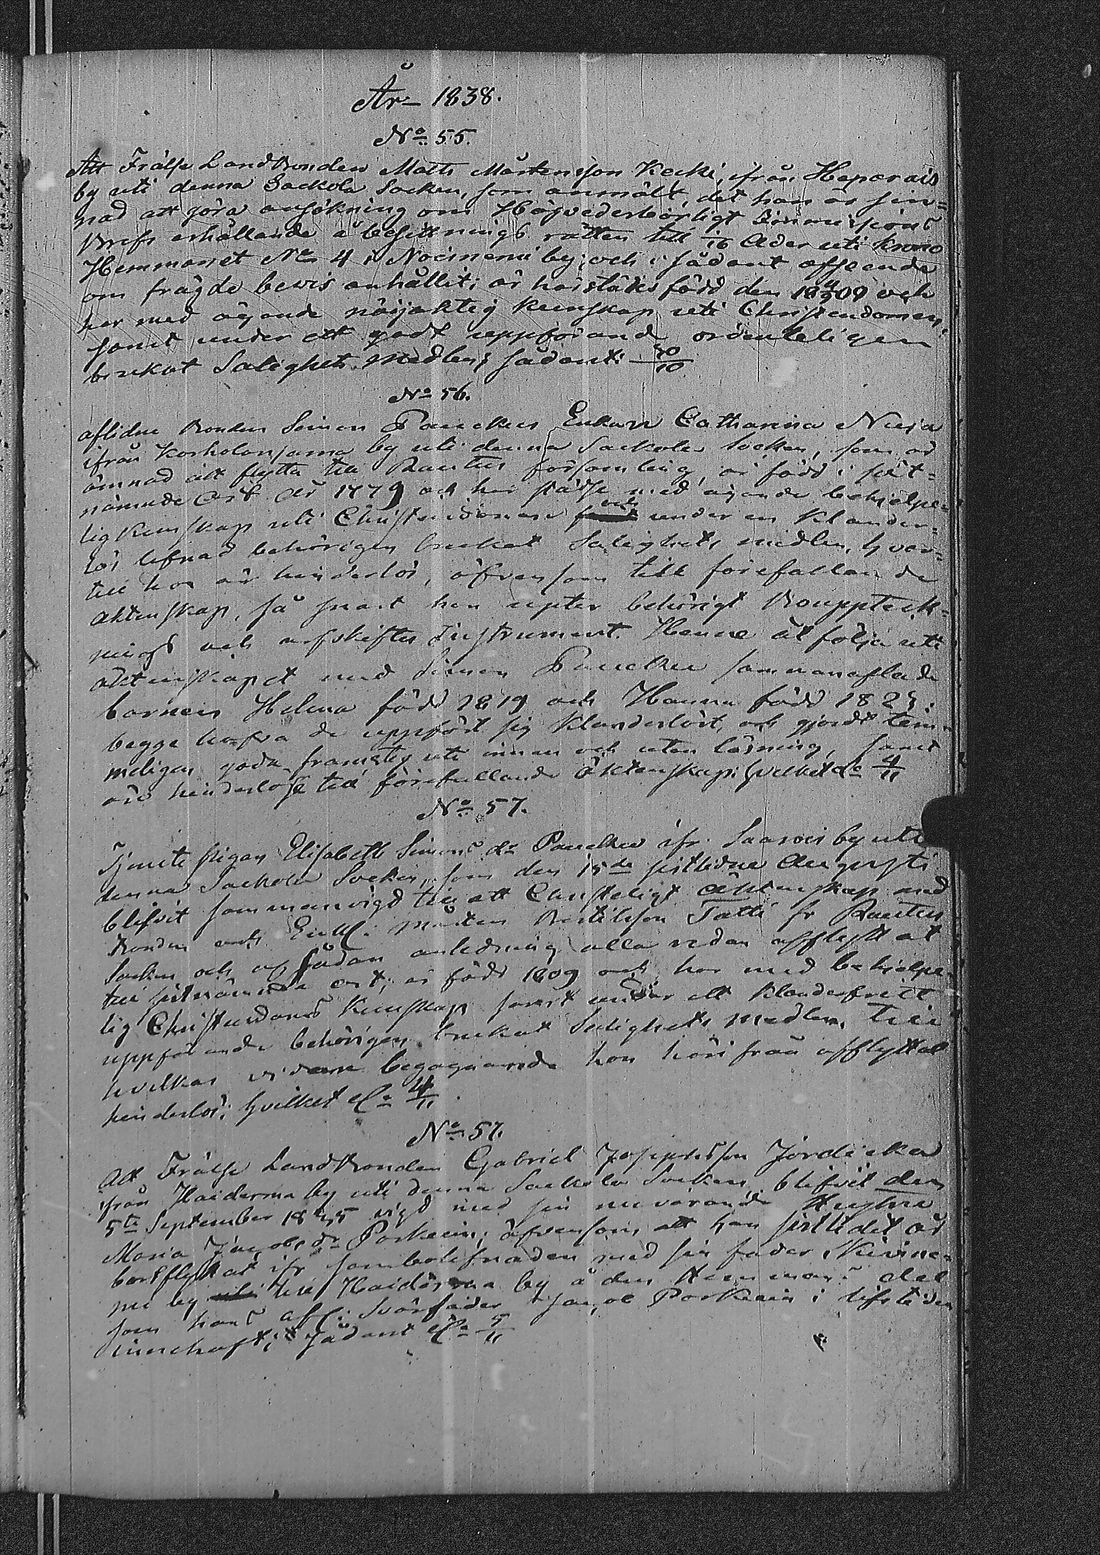 År 1838.
No 55.
Att Frälse Landbonden Matts Mårtensson Kecki, ifrån Haparais
by uti denna Sackola Socken, som anmält, det han är sin-
nad att göra ansökning om Högvederbörligt Immissions
Brefs erhållande å besittnings rätten till Ader uti Krono
Hemmanet No 4 i Noisnemi by; och i sådant afseende
om frägde bevis anhållit; är härstädes född den 1809 och
har med ägande nöjaktig kunskap uti Christendomen,
samt under ett godt uppförande ordenteligen
brukat Salighets medlen; sådant 30/10
No 56.
aflidne Bonden Simon Pauckus Enka Catharina Nusia
ifrån Korholanjama by uti denna Sackola Socken, som är
ämnad att flytta till Rautus församling är född i sist-
nämnde Ort år 1779 och har städse med ägande behjelpe-
lig kunskap uti Christendomen och under en klander-
lös lefnad behörigen brukat Salighets medlen, hvar-
till hon är hinderlös, äfvensom till förefallande
äktenskap, så snart hon upter behörigt Bouppteck-
nings och arfskiftes Instrument. Henne åtfölja utt
äktenskapet med Simon Paucku sammanaflade
barnen Helena född 1819 och Hanna född 1823;
begge hafva de uppfört sig klanderlöst, och gjordt tem-
meligen goda framsteg uti innan och utan läsning, samt
äro hinderlöse till förefallande äktenskap; hvilket 4/11
No 57.
Tjenste pigan Elisabeth Simons dr Paucku ifr Saarois by uti
denna Sackola Socken, som den 15de sistledne Augusti
blifvit sammanvigd till ett Christeligt äktenskap med
Bonden och Enkl. Mårten Bertilsson Tatti fr Rautus
Socken och af sådan anledning alla redan afflyttat
till sistnämnde ort, är född 1809 och har med behjelpe-
lig Christendoms kunskap samt under ett klanderfritt
uppförande behörigen brukat Salighets medlen, till
hvilkas vidare begagnande hon härifrån afflyttat
hinderlös; hvilket 4/11.
No 57.
Att Frälse Landbonden Gabriel Josephsson Jördicka
från Haiderma by uti denna Sackola Socken, blifvit den
5te September 1835 vigd med sin nuvarande Hustru
Maria Jacobs dr Porkein; äfvensom att han sistledit år
bortflyttat ifr sambolefnaden med sin fader, Nurine-
mi by till Haiderma by å den Hemmans del
som hans afl. Svärfader Jacob Porkein i lifstiden
innehaft; sådant 5/11